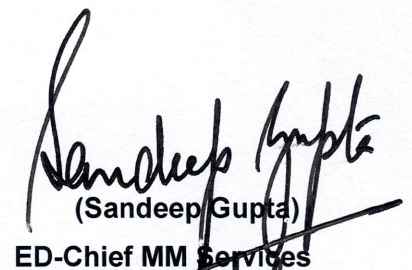 Sandeep Gupta
(Sandeep Gupta)
ED-Chief MM Services